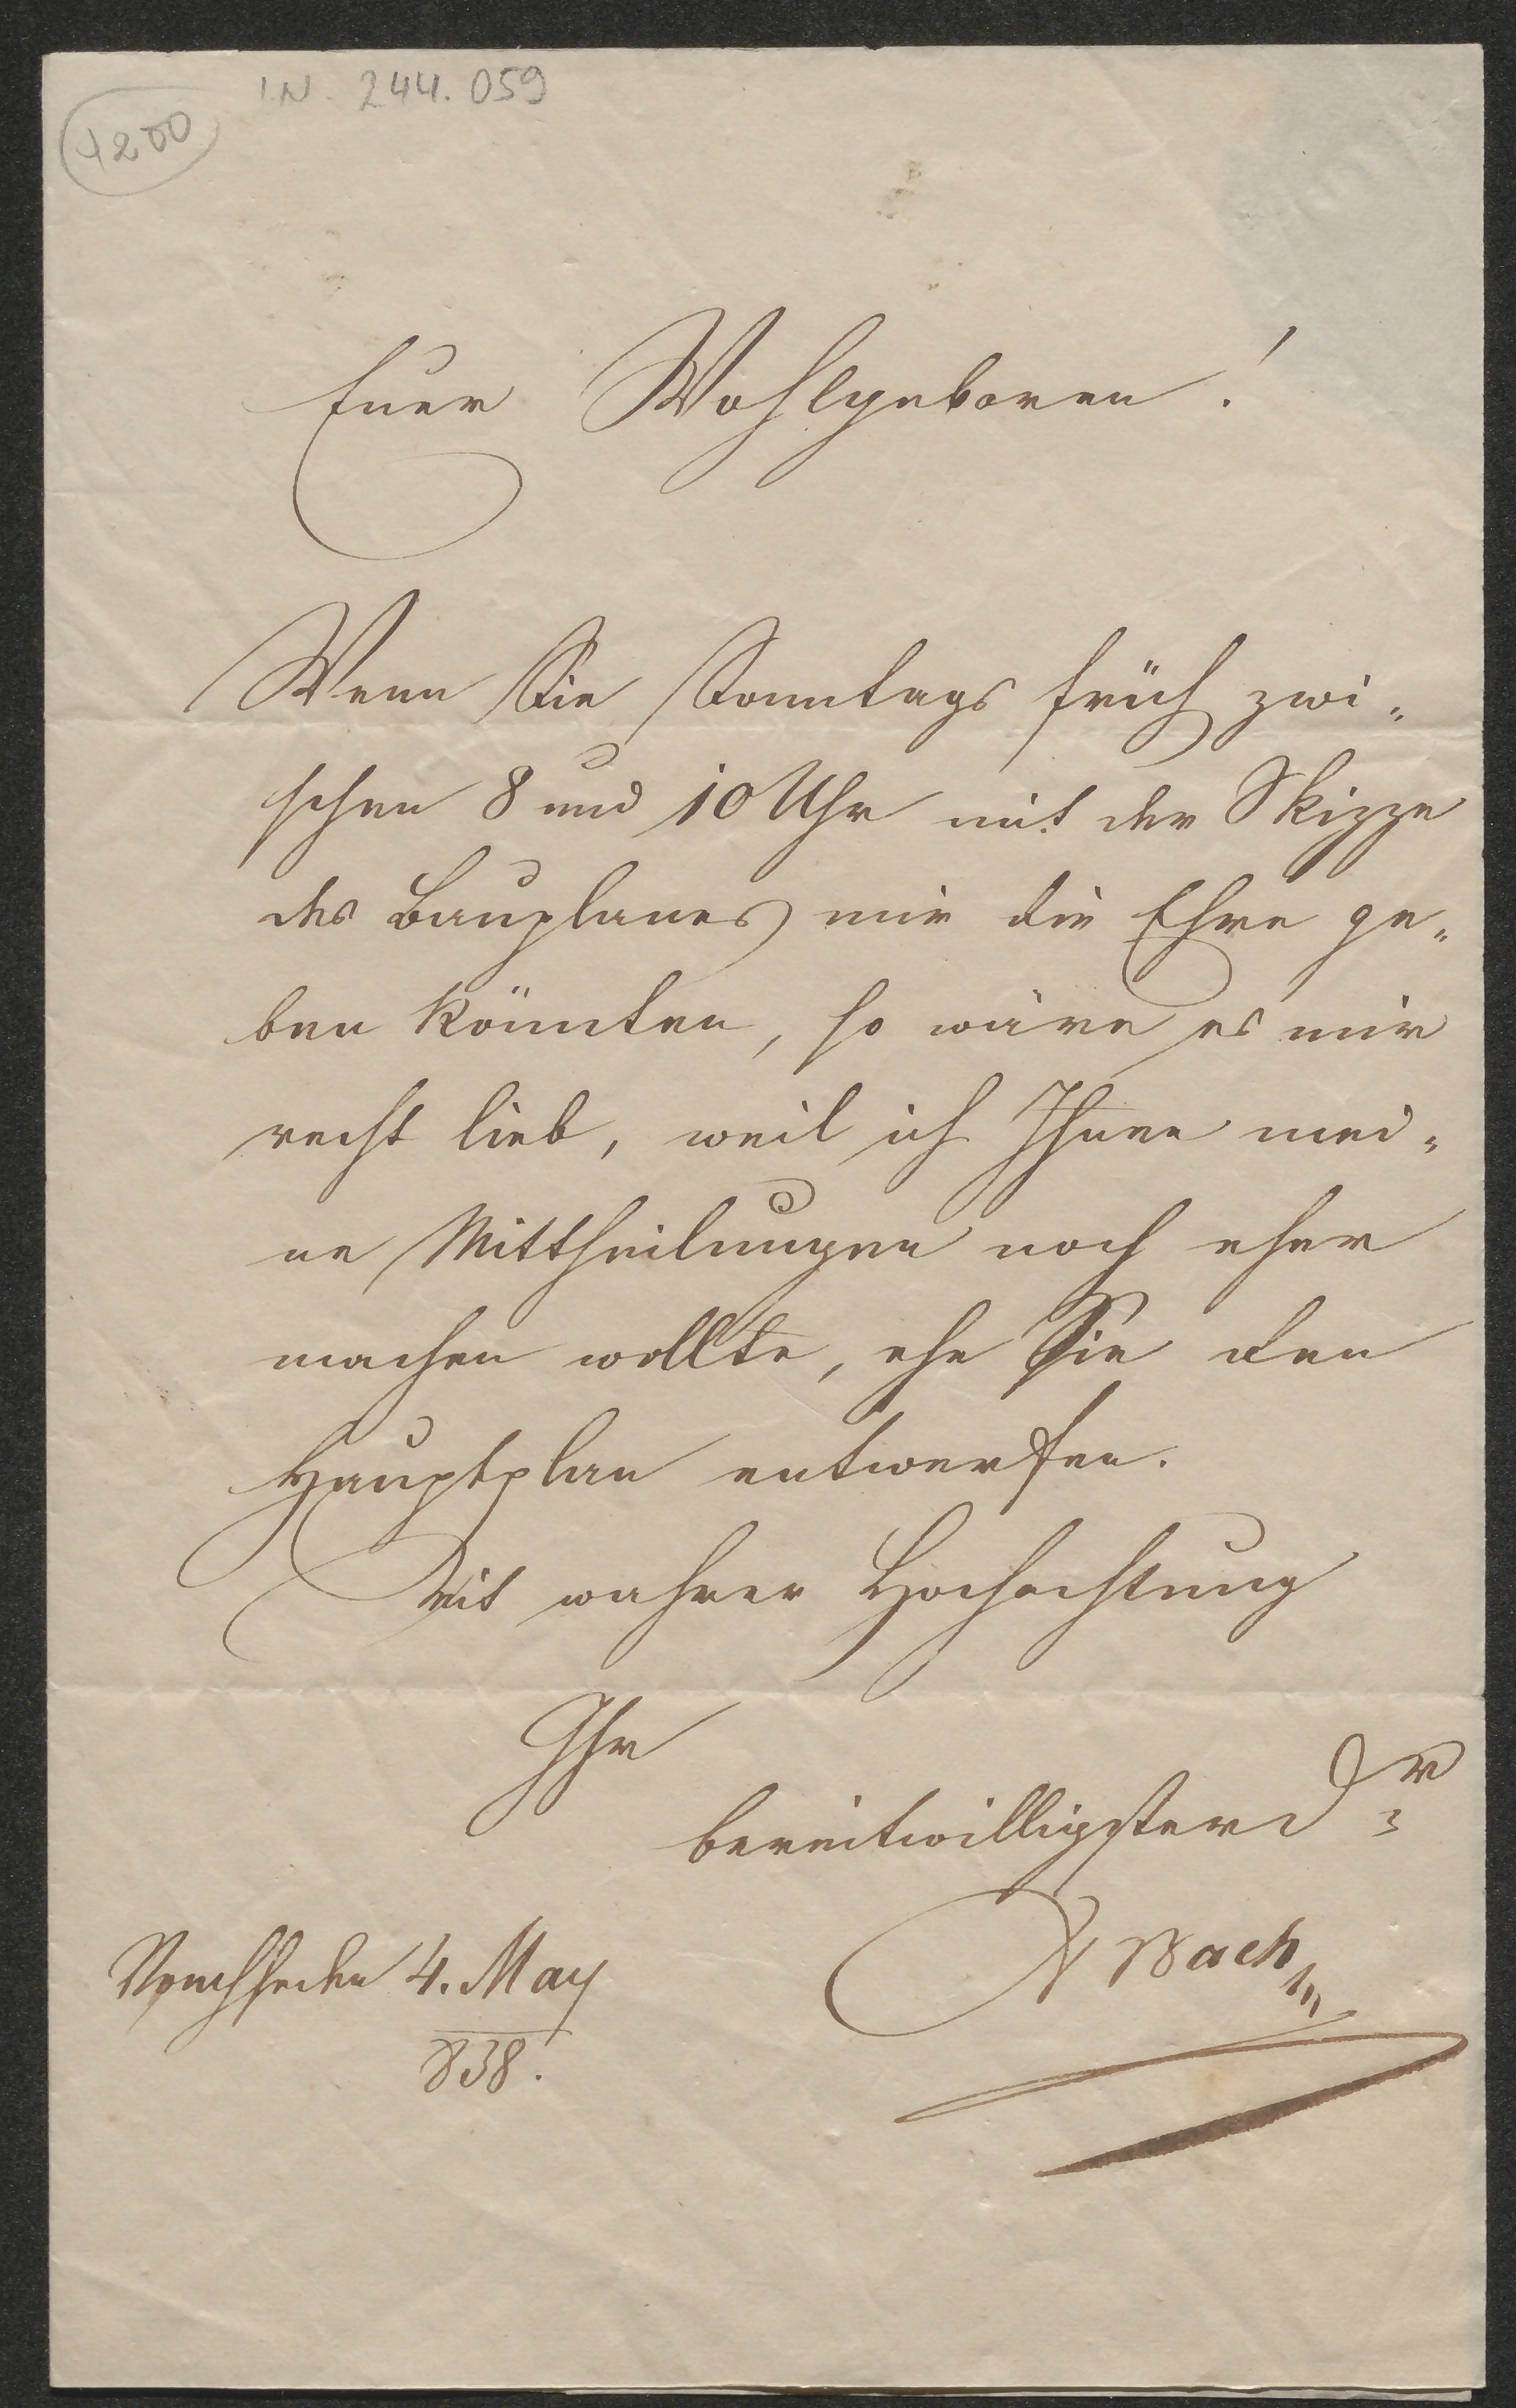 I.N. 244.059
4200
Euer Wohlgeboren!
Wenn Sie Sonntags früh zwi=
schen 8 und 10 Uhr mit der Skizze
des Bauplanes mir die Ehre ge=
ben könnten, so wäre es mir
recht lieb, weil ich Ihnen mei=
ne Mittheilungen noch eher
machen wollte, ehe Sie den
Hauptplan entwerfen.
Mit wahrer Hochachtung
Ihr
bereitwilligster Dr
Bach
4. May
838.